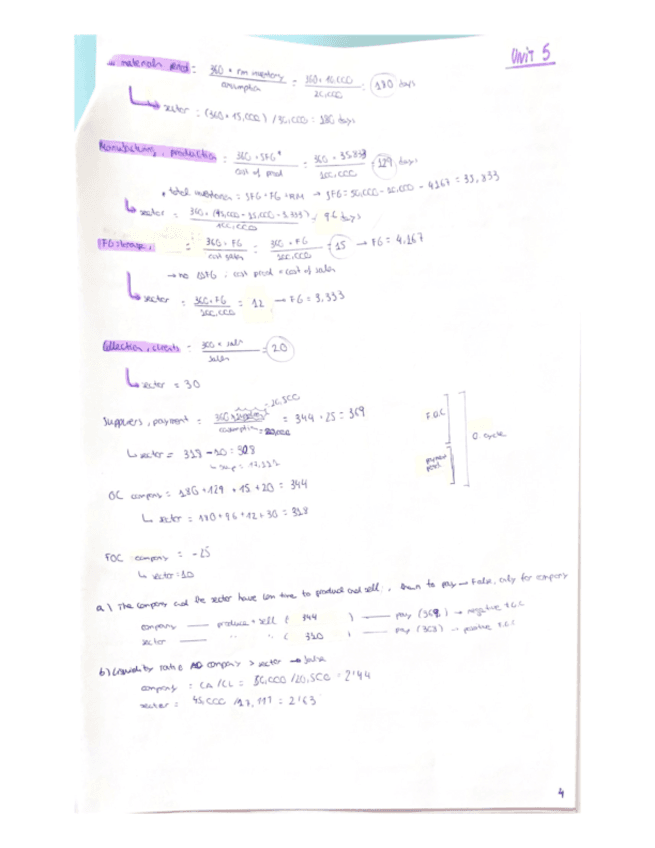 Unit 5
materials period = 360 * rm inventory / consumption = 360 * 10,000 / 20,000 = 180 days
sector : (360 * 15,000) / 30,000 = 180 days
Manufacturing, production = 360 * SFG* / cost of prod = 360 * 35.833 / 100,000 = 129 days
* total inventories = SFG + FG + RM → SFG = 50,000 - 10,000 - 4167 = 35,833
sector = 360 * (45,000 - 15,000 - 3.333) / 100,000 = 96 days
FG storage, = 360 * FG / cost sales = 360 * FG / 100,000 = 15 → FG = 4,167
→ no ΔFG, cost prod = cost of sales
sector = 360 * FG / 100,000 = 12 → FG = 3,333
Collection, clients = 360 * / sales = 20
sector = 30
Suppliers, payment = 360 * suppliers / consumption = 20,000 = 344 + 25 = 369
= 20,500
F.O.C
O cycle
payment period
sector = 318 - 10 = 308
OC company = 180 + 129 + 15 + 20 = 344
sector = 180 + 96 + 12 + 30 = 318
FOC company = -25
sector = 10
a.) The company and the sector have less time to product and sell, than to pay → False, only for company
company — produce + sell ( 344 ) — pay (369) → negative
sector — " " ( ) — pay → positive
b) ratio company > sector → false
company = CA / CL = 50,000 / 20,500 = 2'44
sector = 45,000 / = 2'63
4